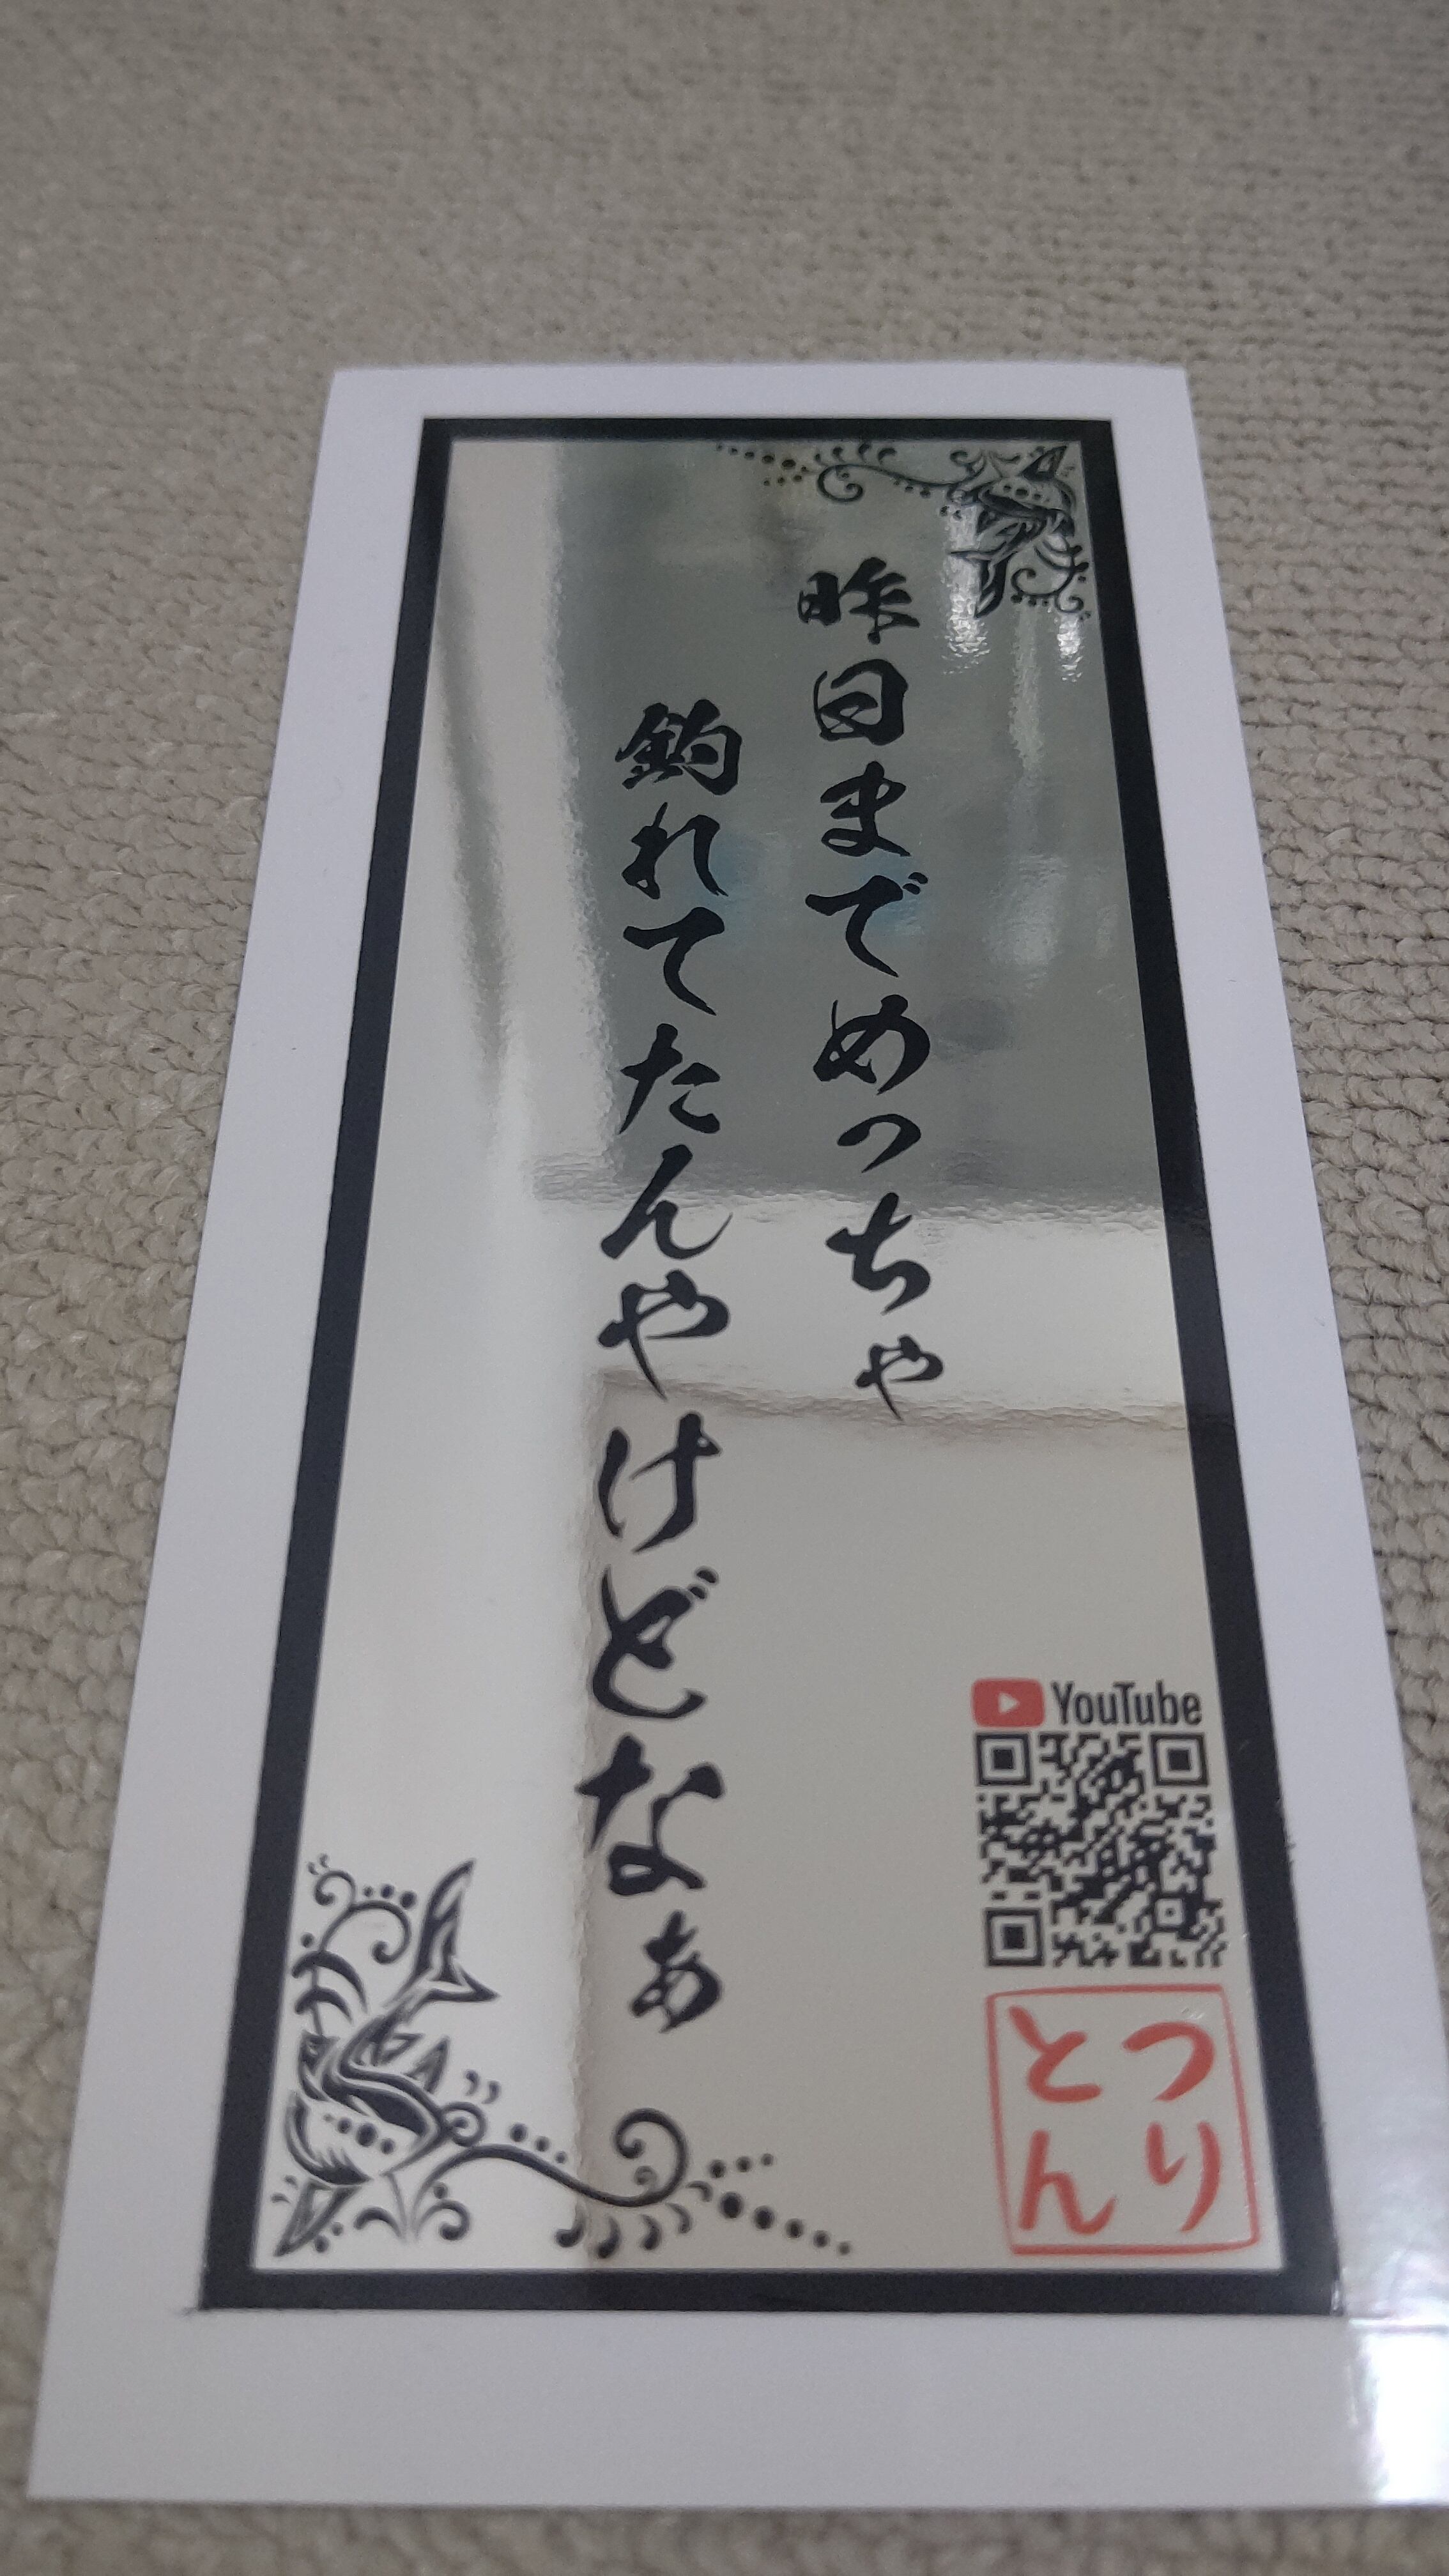 昨日までめっちゃ
釣れてたんやけどなぁ
YouTube
つり
とん